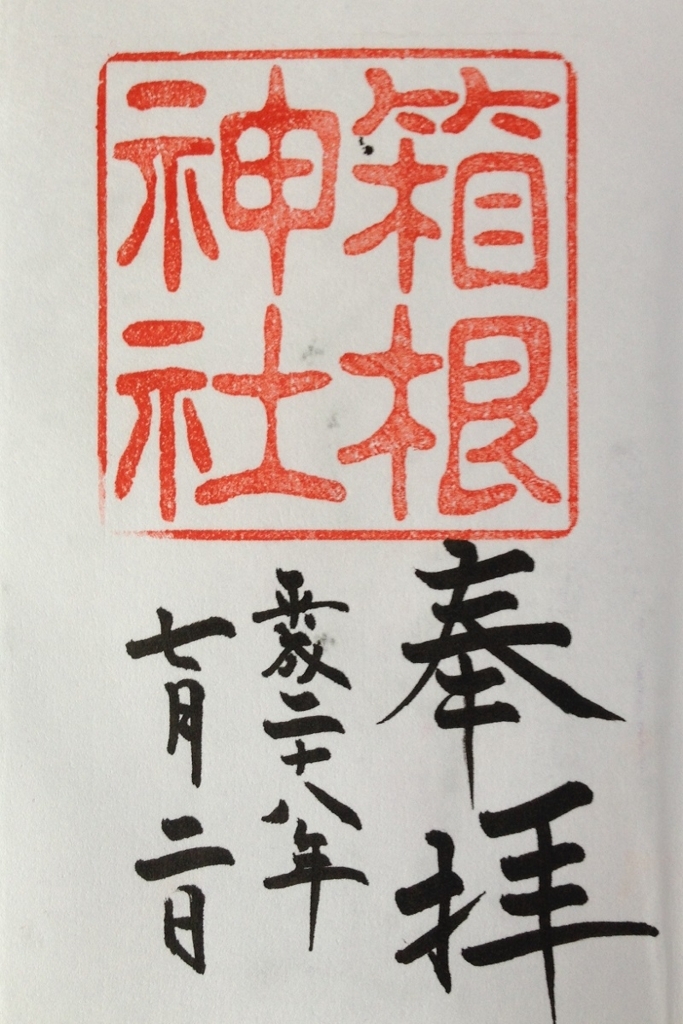 箱根
神社
奉拝
平成二十八年
七月二日